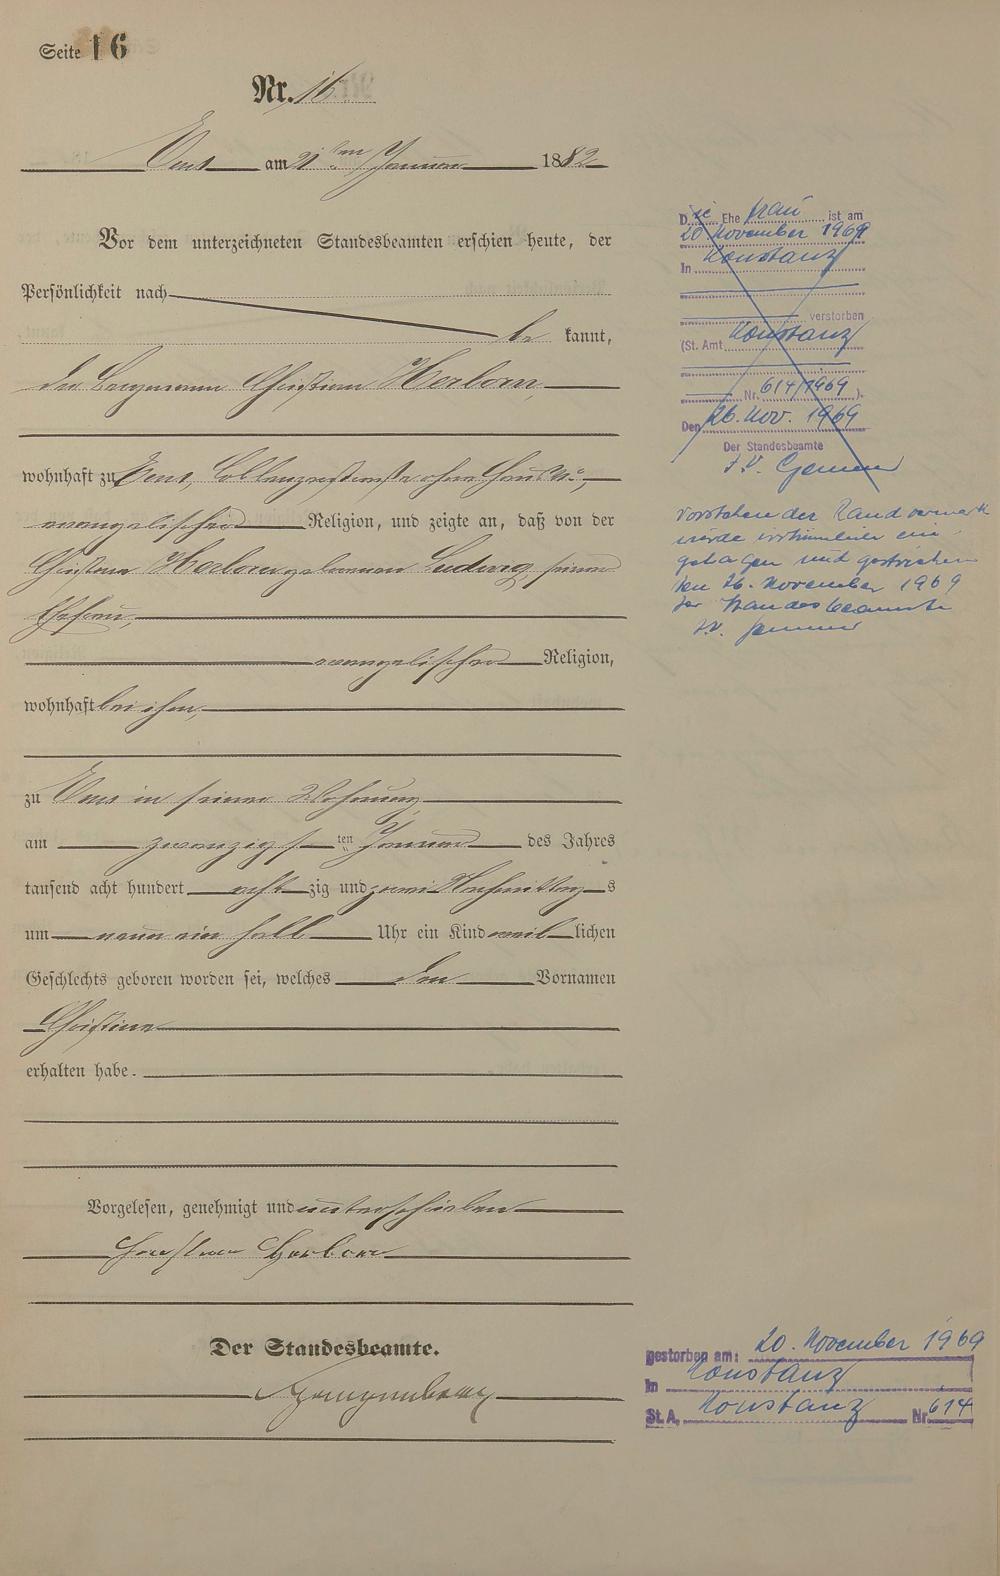 Seite 16
Nr. 16.
Ems am 21ten Januar 1882
Vor dem unterzeichneten Standesbeamten erschien heute, der
Persönlichkeit nach
be kannt,
der Bergmann Christian Herborn,
wohnhaft zu Ems, Coblenzerstraße ohne Haus No,
evangelischer Religion, und zeigte an, daß von der
Christiane Herborn gebornen Ludwig, seiner
Ehefrau,
evangelischer Religion,
wohnhaft bei ihm,
zu Ems in seiner Wohnung
am zwanzigsten Januar des Jahres
tausend acht hundert achtzig und zwei Nachmittags
um neun ein halb Uhr ein Kind weiblichen
Geschlechts geboren worden sei, welches den Vornamen
Christine
erhalten habe.
Vorgelesen, genehmigt und unterschrieben
Christian Herborn
Der Standesbeamte.
Die Ehe frau ist am
20. November 1969
In Konstanz
verstorben
(St. Amt Konstanz
Nr. 614/1969 ).
Den 26. Nov. 1969
Der Standesbeamte
I.V.
Vorstehender Randvermerk
wurde irrtümlich ein-
getragen und gestrichen
den 26. November 1969
Der Standesbeamte
I.V.
gestorben am: 20. November 1969
In Konstanz
St. A. Konstanz Nr. 614